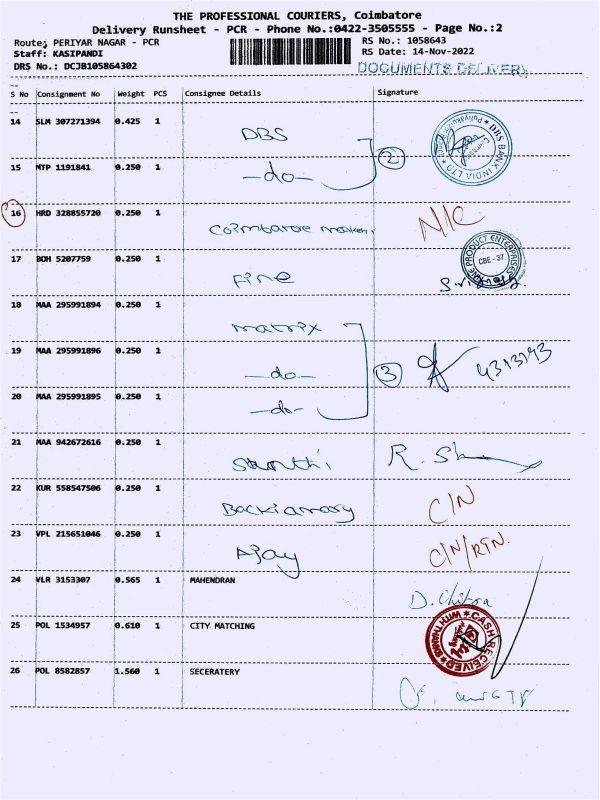 THE PROFESSIONAL COURIERS, Coimbatore
Delivery Runsheet - PCR - Phone No.:0422-3505555 - Page No.:2
Route: PERIYAR NAGAR - PCR
RS No.: 1058643
Staff: KASIPANDI
RS Date: 14-Nov-2022
DRS No.: DCJB105864302
DOCUMENTS DELIVERY
S No Consignment No Weight PCS Consignee Details Signature
14 SLM 307271394 0.425 1 DBS
DBS BANK INDIA LTD
15 MTP 1191841 0.250 1 -do- 2
16 HRD 328855720 0.250 1 Coimbatore N/C
17 BOH 5207759 0.250 1 Fine
PRODUCT ENTERPRISES
CBE - 37
18 MAA 295991894 0.250 1 Matrix
19 MAA 295991896 0.250 1 -do- 3
20 MAA 295991895 0.250 1 -do-
21 MAA 942672616 0.250 1 Santhi R. Sh
22 KUR 558547506 0.250 1 Backiamary C/N
23 VPL 215651046 0.250 1 Ajay C/N/RTN.
24 VLR 3153307 0.565 1 MAHENDRAN D. Chitra
25 POL 1534957 0.610 1 CITY MATCHING
CASH RECEIVED
26 POL 8582857 1.560 1 SECERATERY